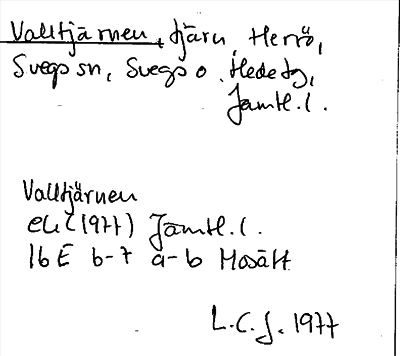 Valltjärnen, tjärn, Herrö,
Svegs sn, Svegs o. Hede tg,
Jämtl. l.
Valltjärnen
ek (1977) Jämtl. l.
16E b-7 a-b Mosätt
L.C.J. 1977